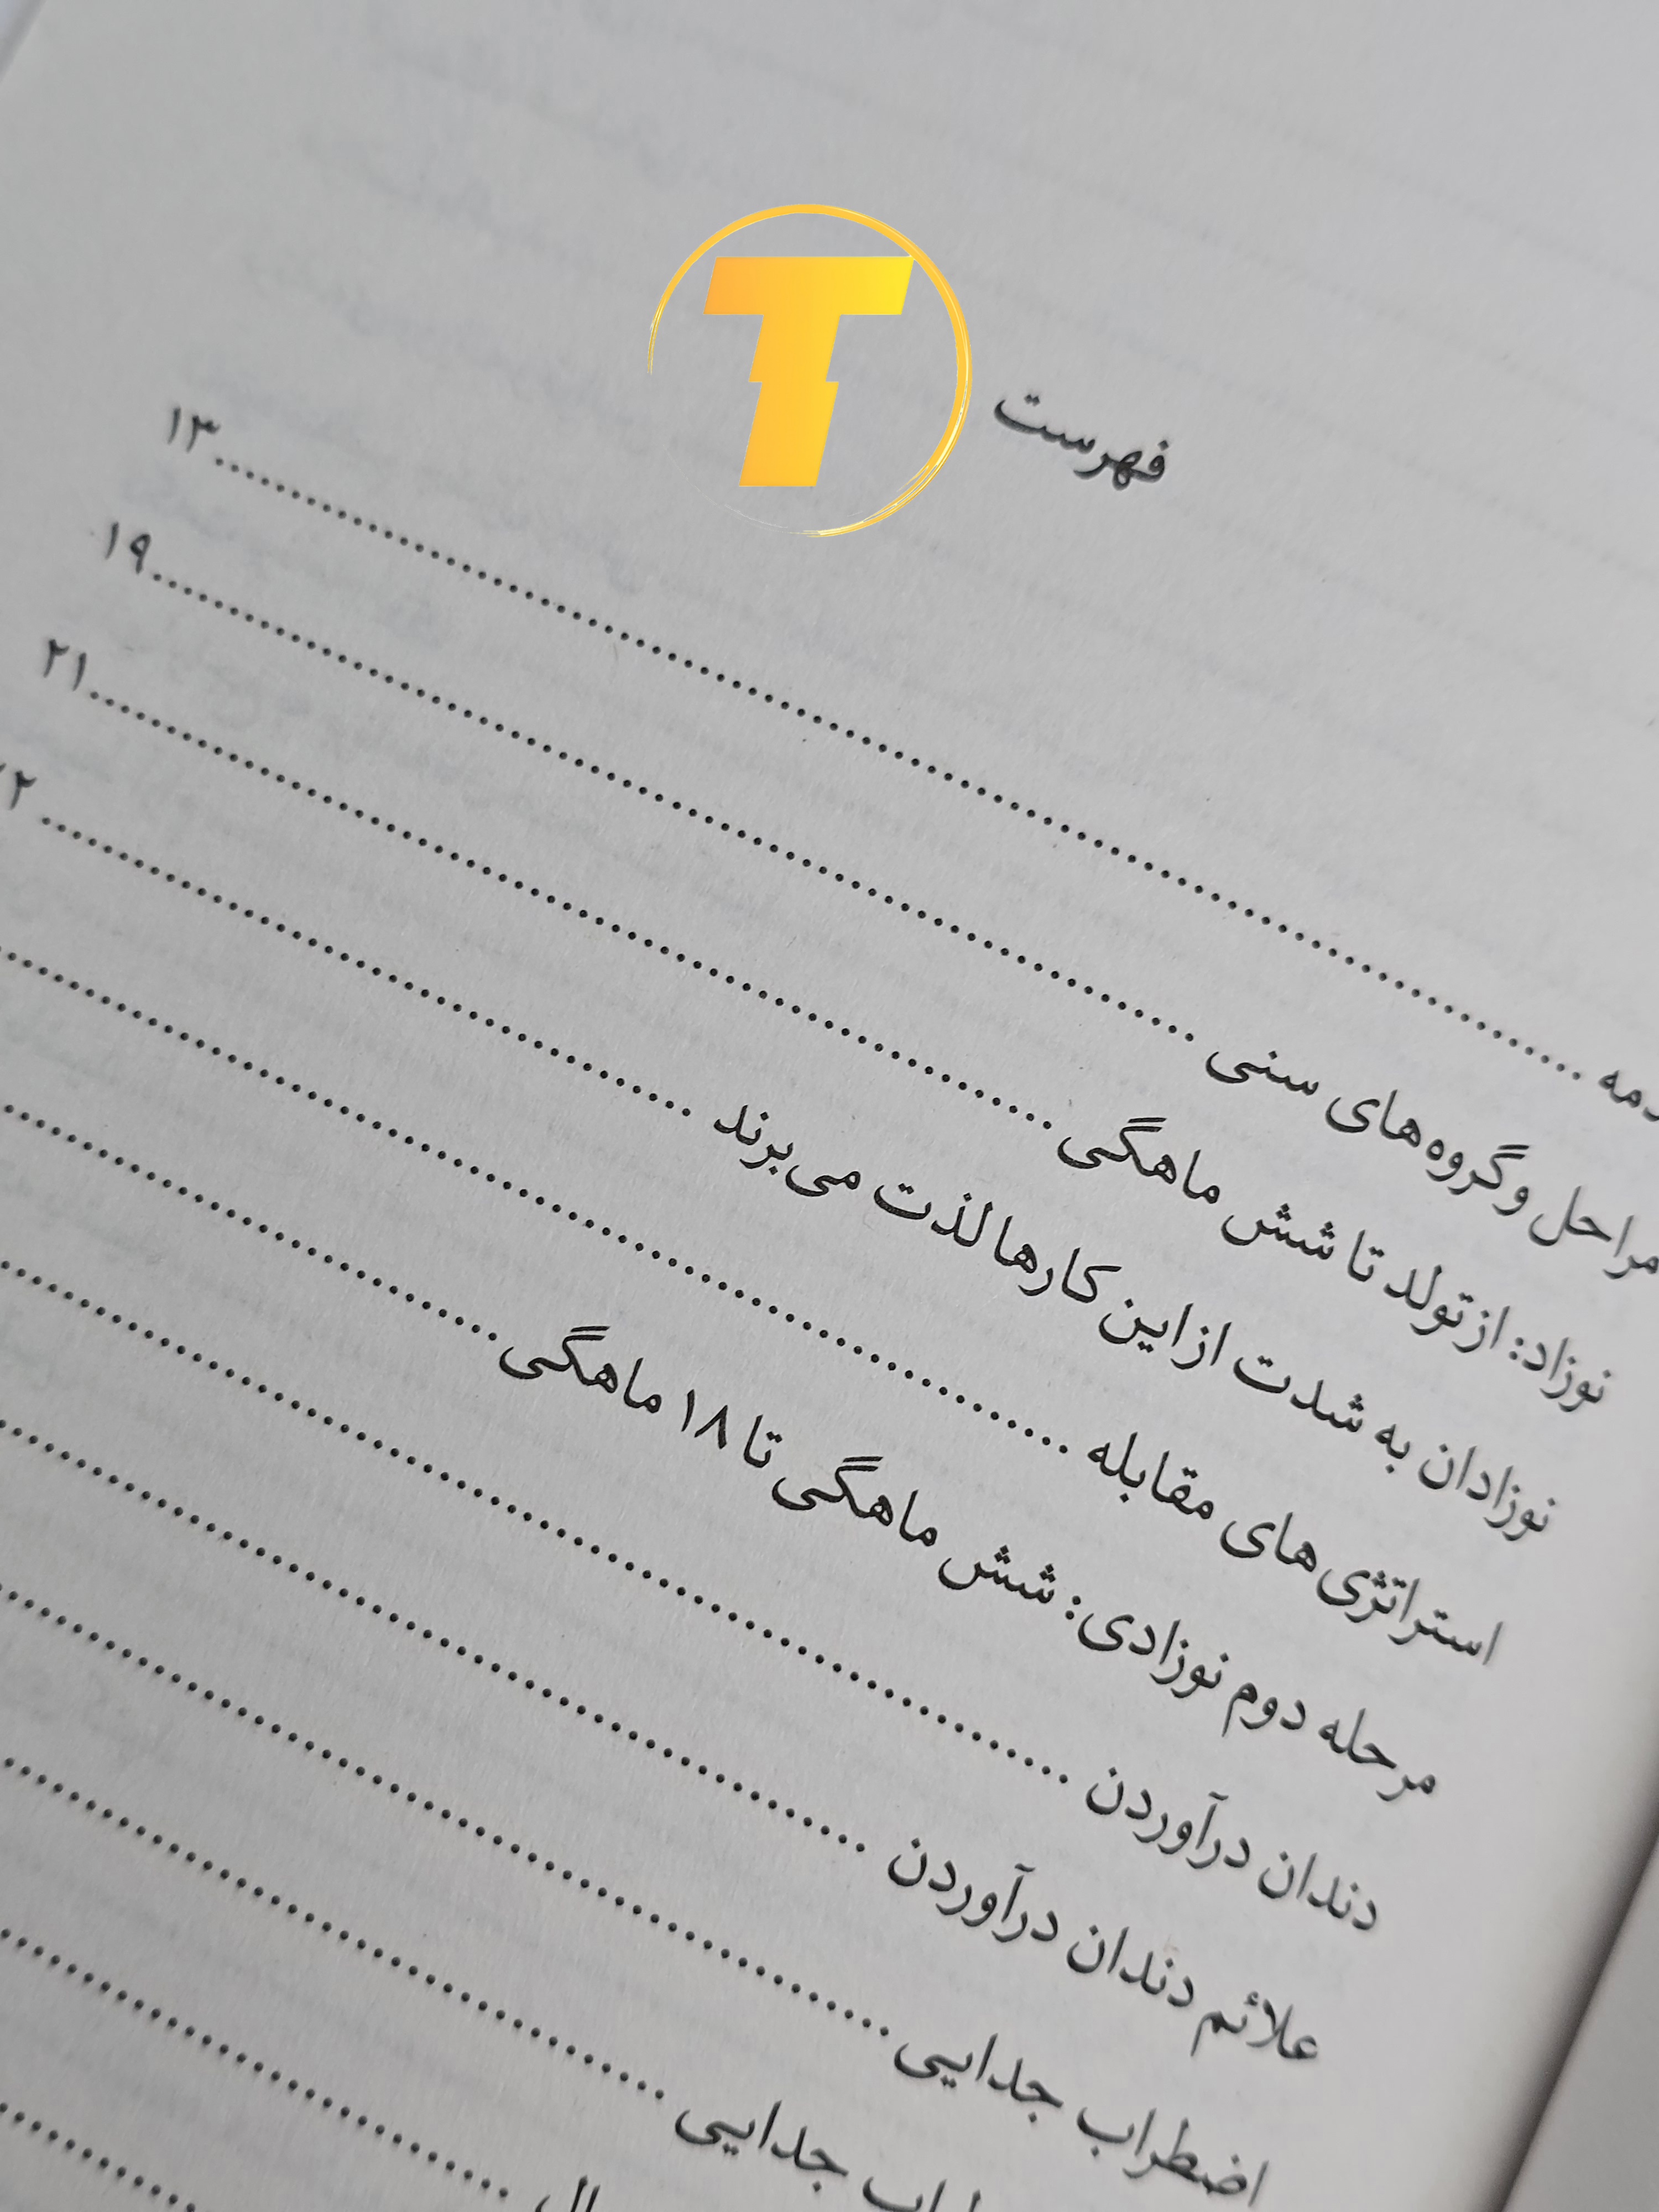 فهرست
۱۳
مراحل و گروه‌های سنی ۱۹
نوزاد: از تولد تا شش ماهگی ۲۱
نوزادان به شدت از این کارها لذت می‌برند
استراتژی‌های مقابله
مرحله دوم نوزادی: شش ماهگی تا ۱۸ ماهگی
دندان درآوردن
علائم دندان درآوردن
اضطراب جدایی
جدایی
T